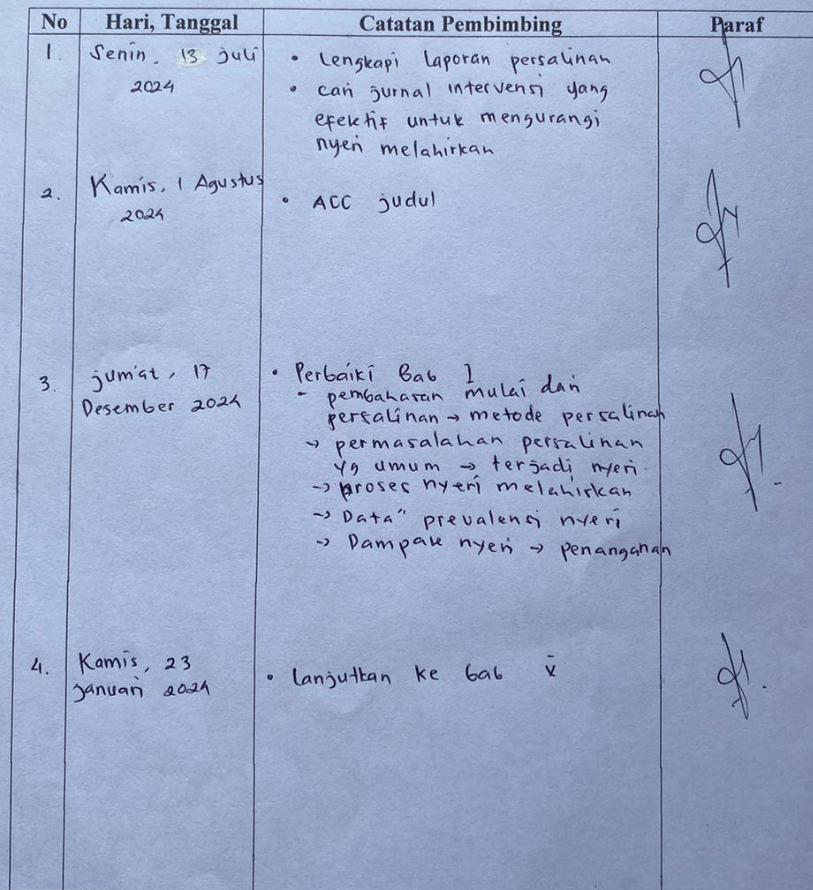 No Hari, Tanggal Catatan Pembimbing Paraf
1. Senin, 13 juli
2024
• Lengkapi Laporan persalinan
• cari jurnal intervensi yang
efektif untuk mengurangi
nyeri melahirkan
2. Kamis, 1 Agustus
2024
• ACC judul
3. jum'at, 17
Desember 2024
• Perbaiki Bab I
- pembahasan mulai dari
persalinan → metode persalinan
→ permasalahan persalinan
yg umum → terjadi nyeri.
→ proses nyeri melahirkan
→ Data" prevalensi nyeri
→ Dampak nyeri → penanganan
4. Kamis, 23
januari 2024
• Lanjutkan ke bab V